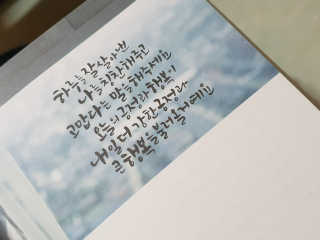 하루를 잘 살아낸
나를 칭찬해주고
고맙다는 말을 해주세요
오늘의 긍정적 행복이
내일 더 강한 긍정과
큰 행복을 불러올거예요